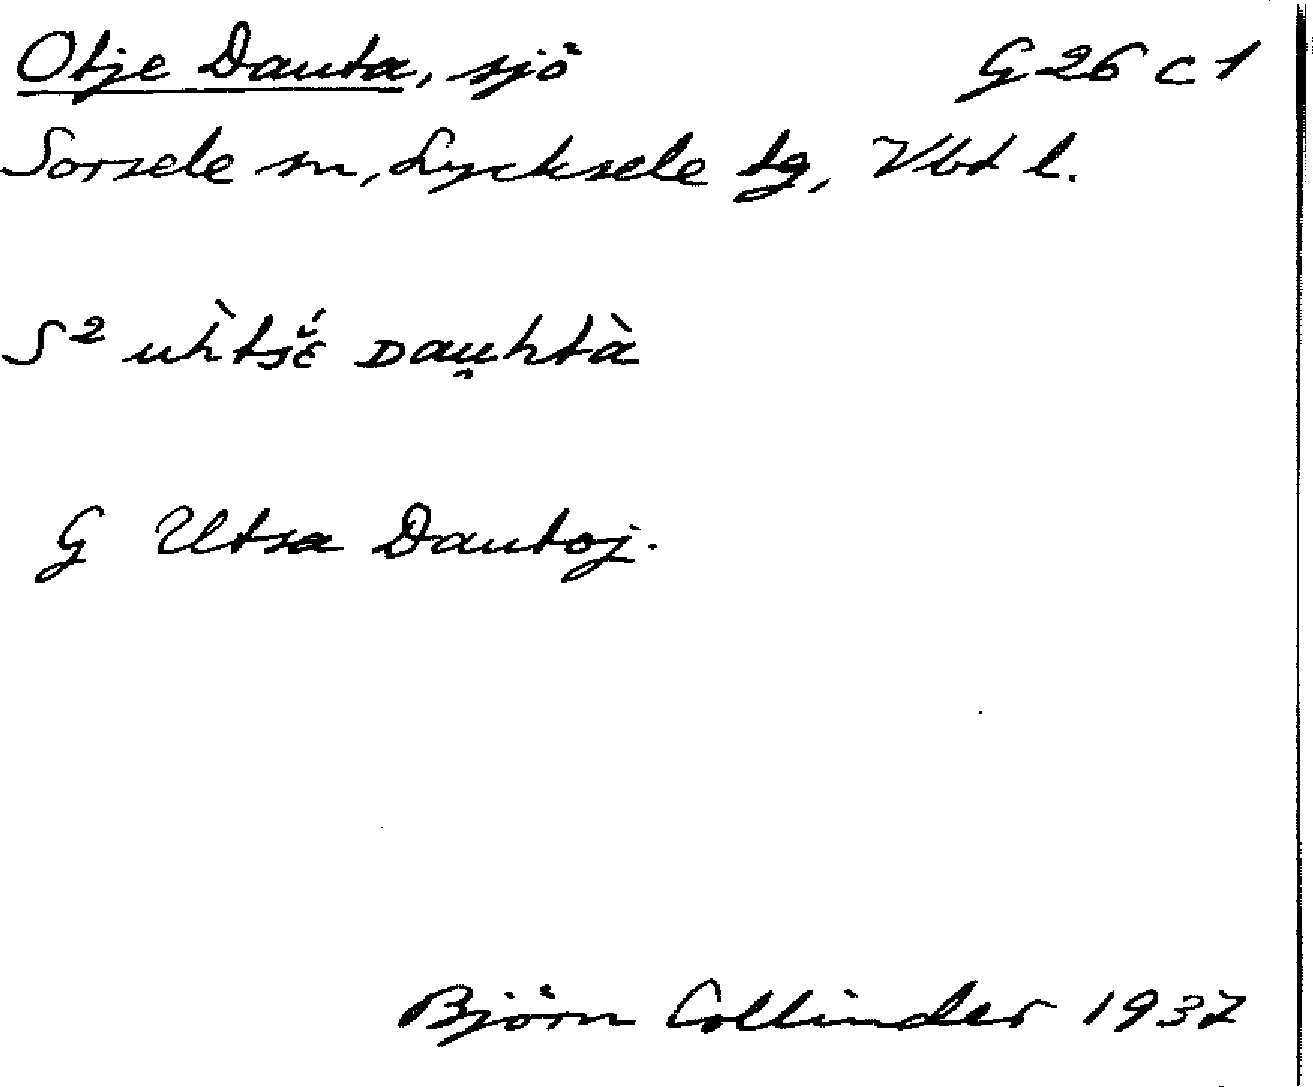 Otje Dauta, sjö G 26 c 1
Sorsele sn, Lycksele tg, Vbt l.
S² Dau̯htà
G Utsa Dautoj.
Björn Collinder 1937